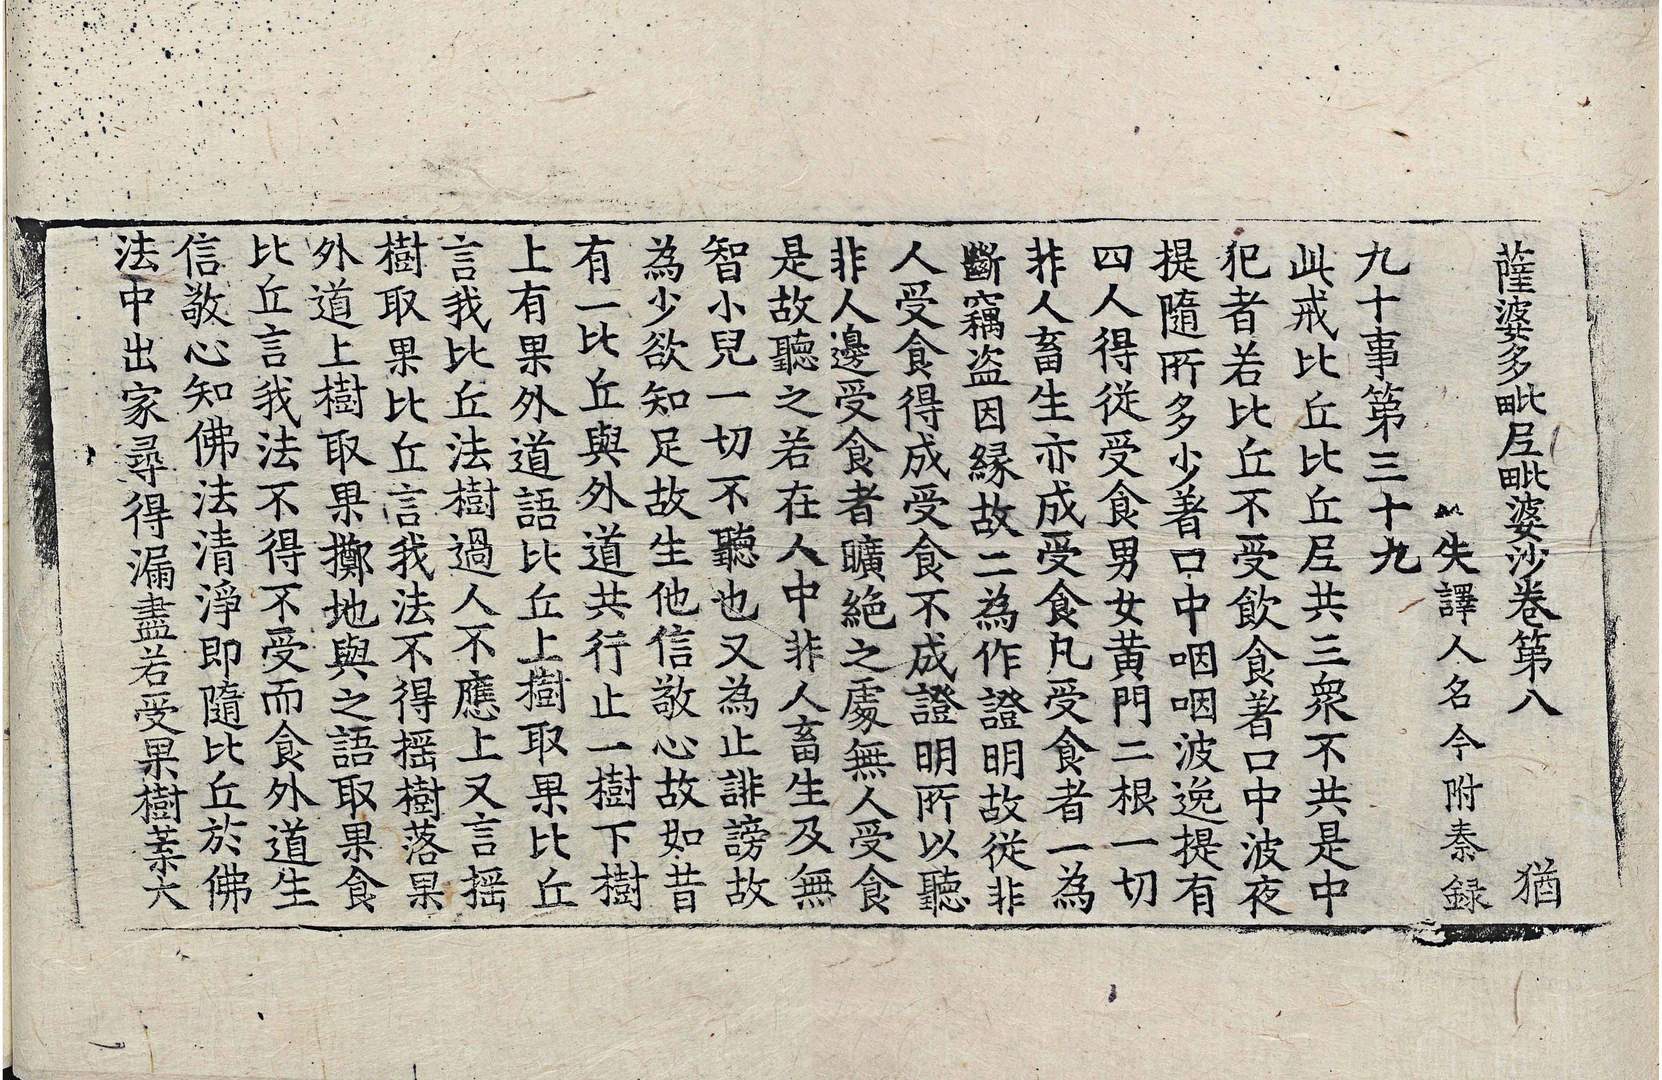 薩婆多毗尼毗婆沙卷第八　猶
失譯人名今附秦録
九十事第三十九
此戒比丘比丘尼共三衆不共是中
犯者若比丘不受飲食著口中波夜
提隨所多少著口中咽咽波逸提有
四人得従受食男女黄門二根一切
非人畜生亦成受食凡受食者一為
斷竊盗因縁故二為作證明故従非
人受食得成受食不成證明所以聽
非人邊受食者曠絶之處無人受食
是故聽之若在人中非人畜生及無
智小兒一切不聽也又為止誹謗故
為少欲知足故生他信敬心故如昔
有一比丘與外道共行止一樹下樹
上有果外道語比丘上樹取果比丘
言我比丘法樹過人不應上又言揺
樹取果比丘言我法不得揺樹落果
外道上樹取果擲地與之語取果食
比丘言我法不得不受而食外道生
信敬心知佛法清淨即隨比丘於佛
法中出家尋得漏盡若受果樹葉大